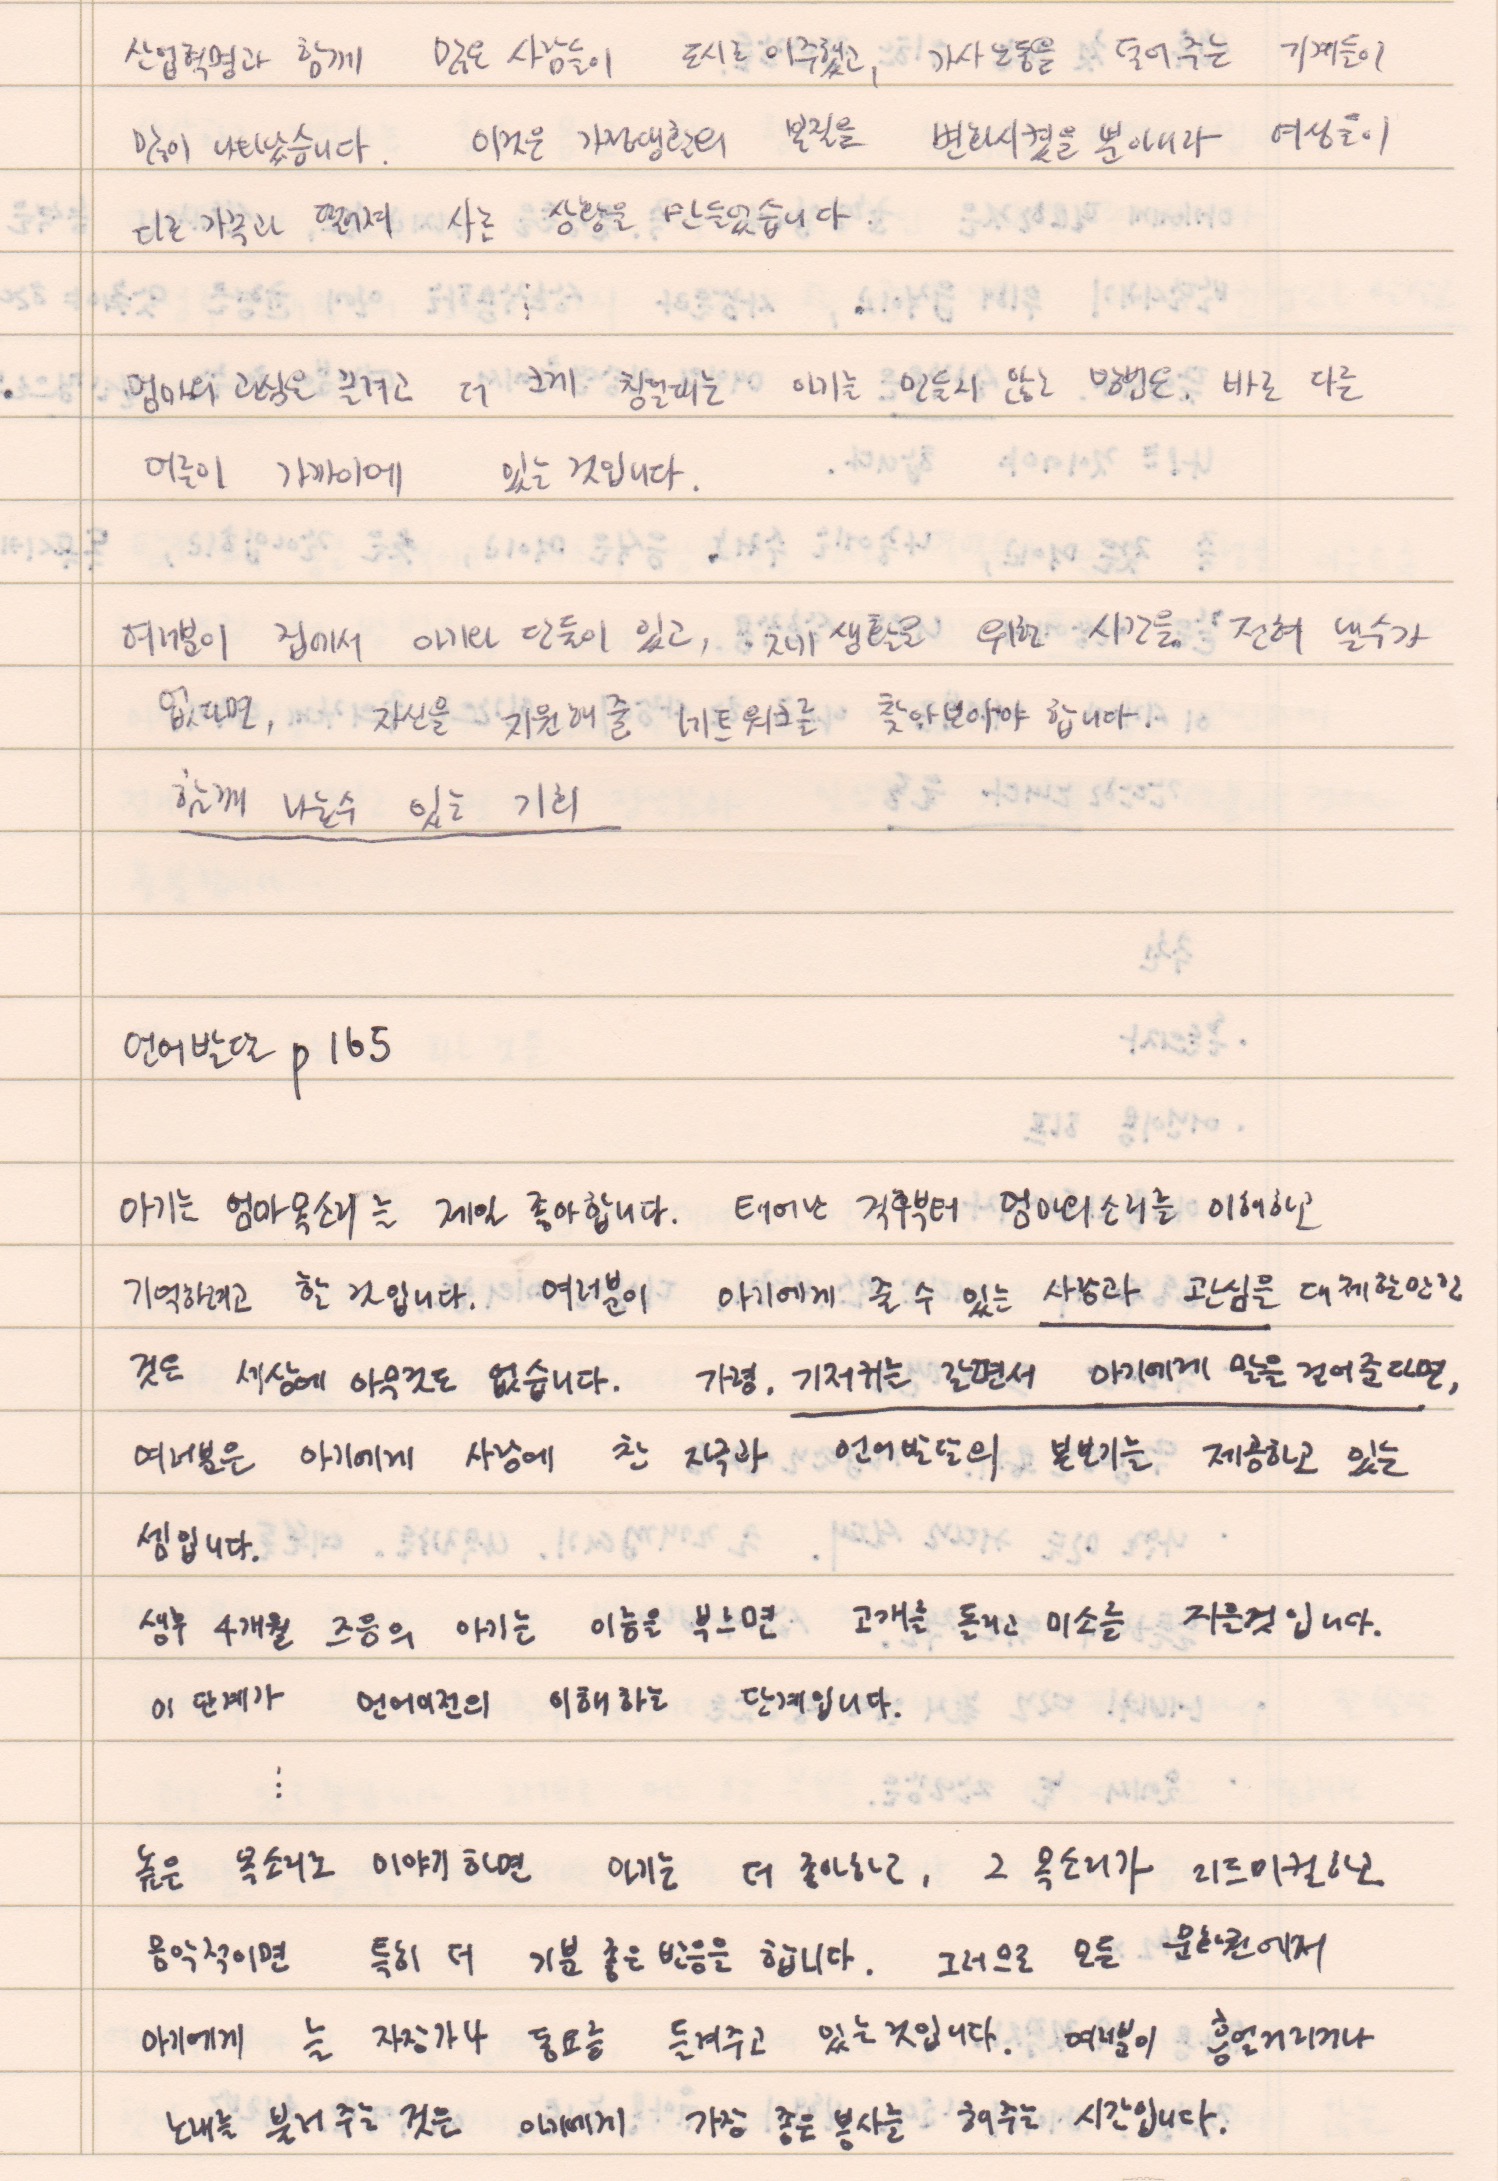 산업혁명과 함께 많은 사람들이 도시로 이주했고, 가사노동을 덜어 주는 기계들이
많이 나타났습니다. 이것은 가정생활의 본질을 변화시켰을 뿐아니라 여성들이
다른 가족과 떨어져 사는 상황을 만들었습니다.
⋮
엄마의 관심을 끌려고 더 크게 칭얼대는 아기를 만들지 않는 방법은, 바로 다른
어른이 가까이에 있는 것입니다.
여러분이 집에서 아기와 단둘이 있고, 생활을 위한 시간을 전혀 낼수가
없다면, 자신을 지원해줄 네트워크를 찾아보아야 합니다.
함께 나눌수 있는 기회
언어발달 p 165
아기는 엄마목소리를 제일 좋아합니다. 태어난 직후부터 엄마의 소리를 이해하고
기억하려고 할 것입니다. 여러분이 아기에게 줄 수 있는 사랑과 관심을 대체할만한
것은 세상에 아무것도 없습니다. 가령, 기저귀를 갈면서 아기에게 말을 걸어준다면,
여러분은 아기에게 사랑에 찬 자극과 언어발달의 본보기를 제공하고 있는
셈입니다.
생후 4개월 즈음의 아기는 이름을 부르면 고개를 돌리고 미소를 지을것입니다.
이 단계가 언어이전의 이해하는 단계입니다.
⋮
높은 목소리로 이야기하면 아기는 더 좋아하고, 그 목소리가 리드미컬하고
음악적이면 특히 더 기분 좋은 반응을 합니다. 그러므로 모든 문화권에서
아기에게 늘 자장가나 동요를 들려주고 있는것입니다. 여러분이 흥얼거리거나
노래를 불러 주는 것은 아기에게 가장 좋은 봉사를 해주는 시간입니다.